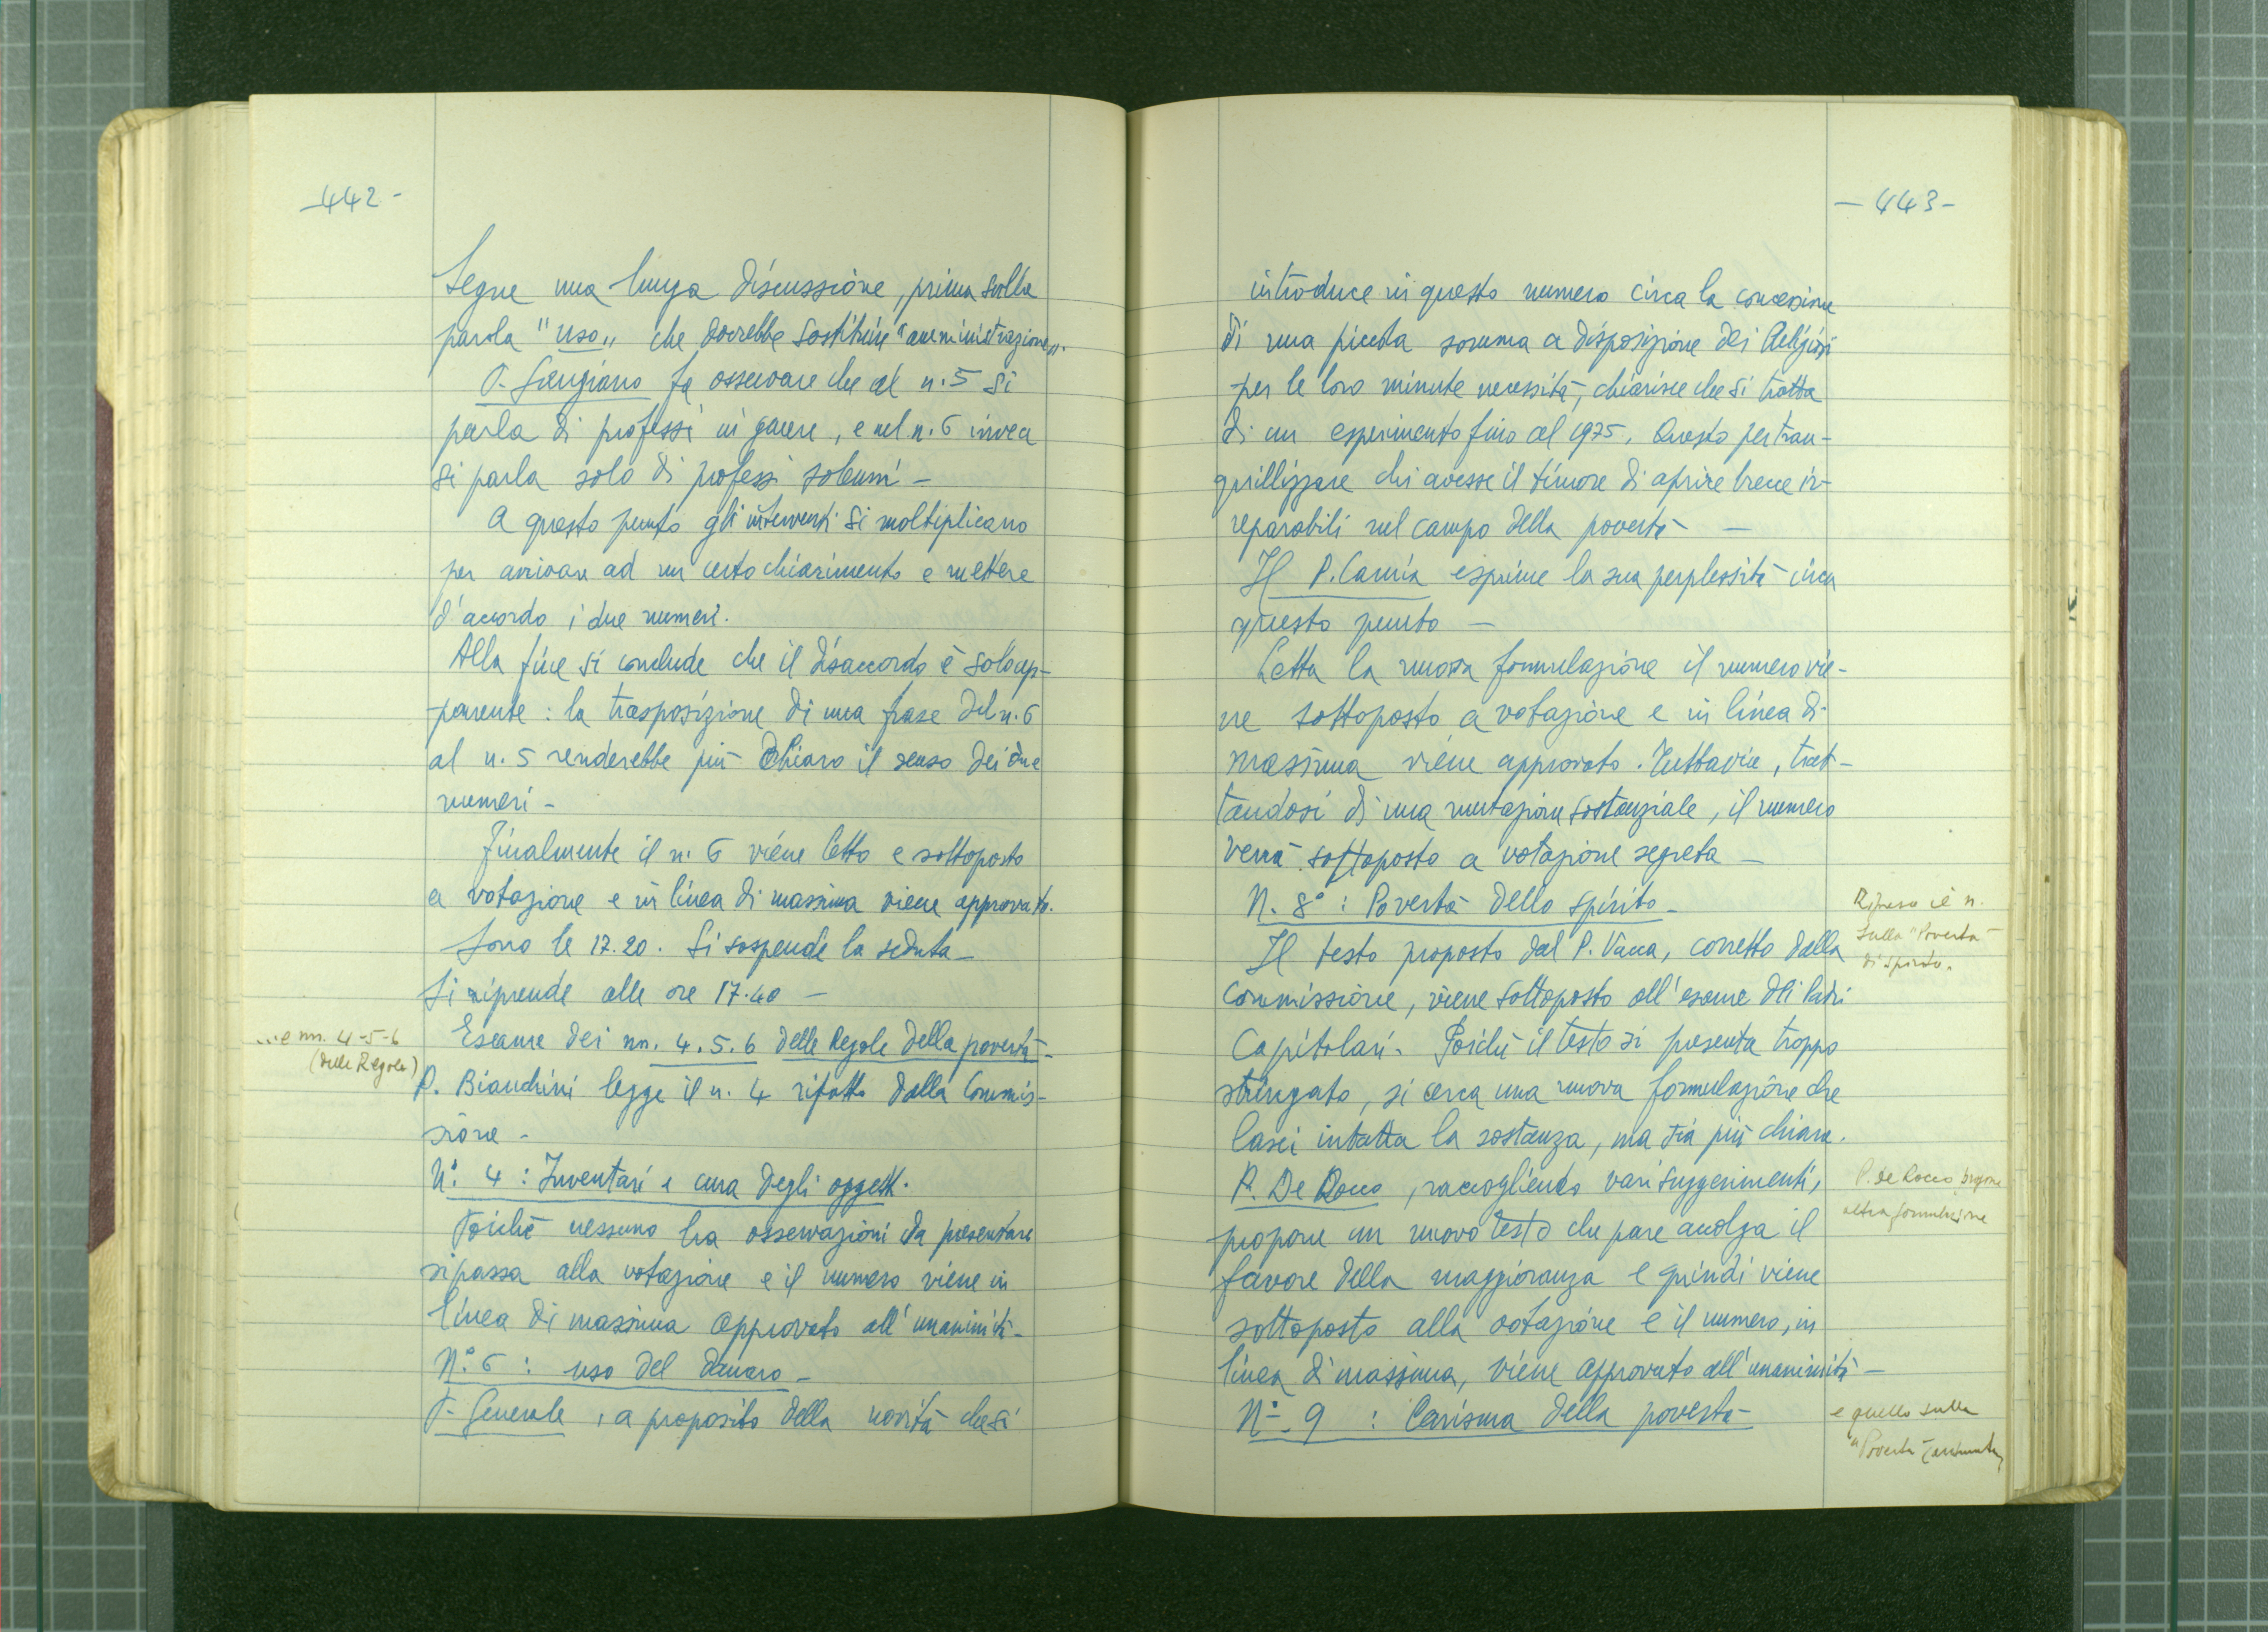 -442-
Segue una lunga discussione, prima sulla
parola "uso" che dovrebbe sostituire "amministrazione".
P. Sangiano fa osservare che al n. 5 si
parla di professi in genere, e nel n. 6 invece
si parla solo di professi solenni -
A questo punto gli interventi si moltiplicano
per arrivare ad un certo chiarimento e mettere
d'accordo i due numeri.
Alla fine si conclude che il disaccordo è solo ap-
parente: la trasposizione di una frase del n. 6
al n. 5 renderebbe più chiaro il senso dei due
numeri -
Finalmente il n. 6 viene letto e sottoposto
a votazione e in linea di massima viene approvato.
Sono le 17.20. Si sospende la seduta -
Si riprende alle ore 17.40 -
...e nn. 4-5-6
(delle Regole)
Esame dei nn. 4.5.6 delle Regole della povertà -
P. Bianchini legge il n. 4 rifatto dalla Commis-
sione -
N° 4: Inventari e cura degli oggetti.
Poiché nessuno ha osservazioni da presentare
si passa alla votazione e il numero viene in
linea di massima approvato all'unanimità -
N° 6: uso del danaro -
P. Generale, a proposito della novità che si
- 443 -
introduce in questo numero circa la concessione
di una piccola somma a disposizione dei Religiosi
per le loro minute necessità, chiarisce che si tratta
di un esperimento fino al 1975. Questo per tran-
quillizzare chi avesse il timore di aprire brecce ir-
reparabili nel campo della povertà -
Il P. Camia esprime la sua perplessità circa
questo punto -
Letta la nuova formulazione il numero vie-
ne sottoposto a votazione e in linea di
massima viene approvato. Tuttavia, trat-
tandosi di una mutazione sostanziale, il numero
verrà sottoposto a votazione segreta -
N. 8°: Povertà dello spirito -
Ripreso il n.
sulla "Povertà
di spirito"
Il testo proposto dal P. Vacca, corretto dalla
Commissione, viene sottoposto all'esame dei Padri
Capitolari. Poiché il testo si presenta troppo
stringato, si cerca una nuova formulazione che
lasci intatta la sostanza, ma sia più chiara.
P. De Rocco, raccogliendo vari suggerimenti,
P. de Rocco propone
altra formulazione
propone un nuovo testo che pare accolga il
favore della maggioranza e quindi viene
sottoposto alla votazione e il numero, in
linea di massima, viene approvato all'unanimità -
N° 9: Carisma della povertà
e quello sulla
"Povertà